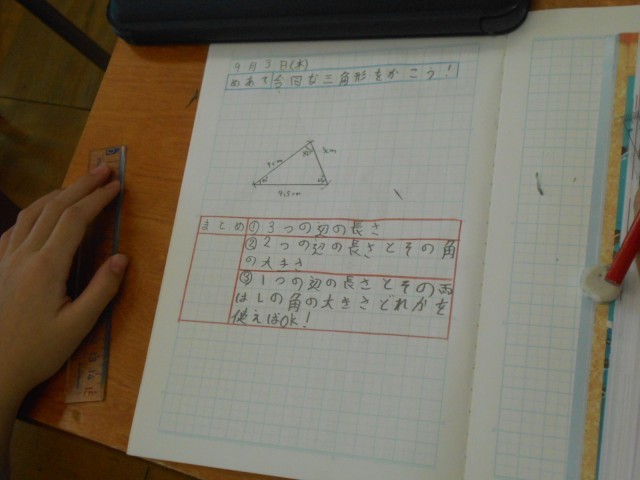 9月3日(木)
めあて 合同な三角形をかこう!
4cm
4.5cm
まとめ ①3つの辺の長さ
②2つの辺の長さとその角
の大きさ
③1つの辺の長さとその両
はしの角の大きさどれかを
使えばOK!